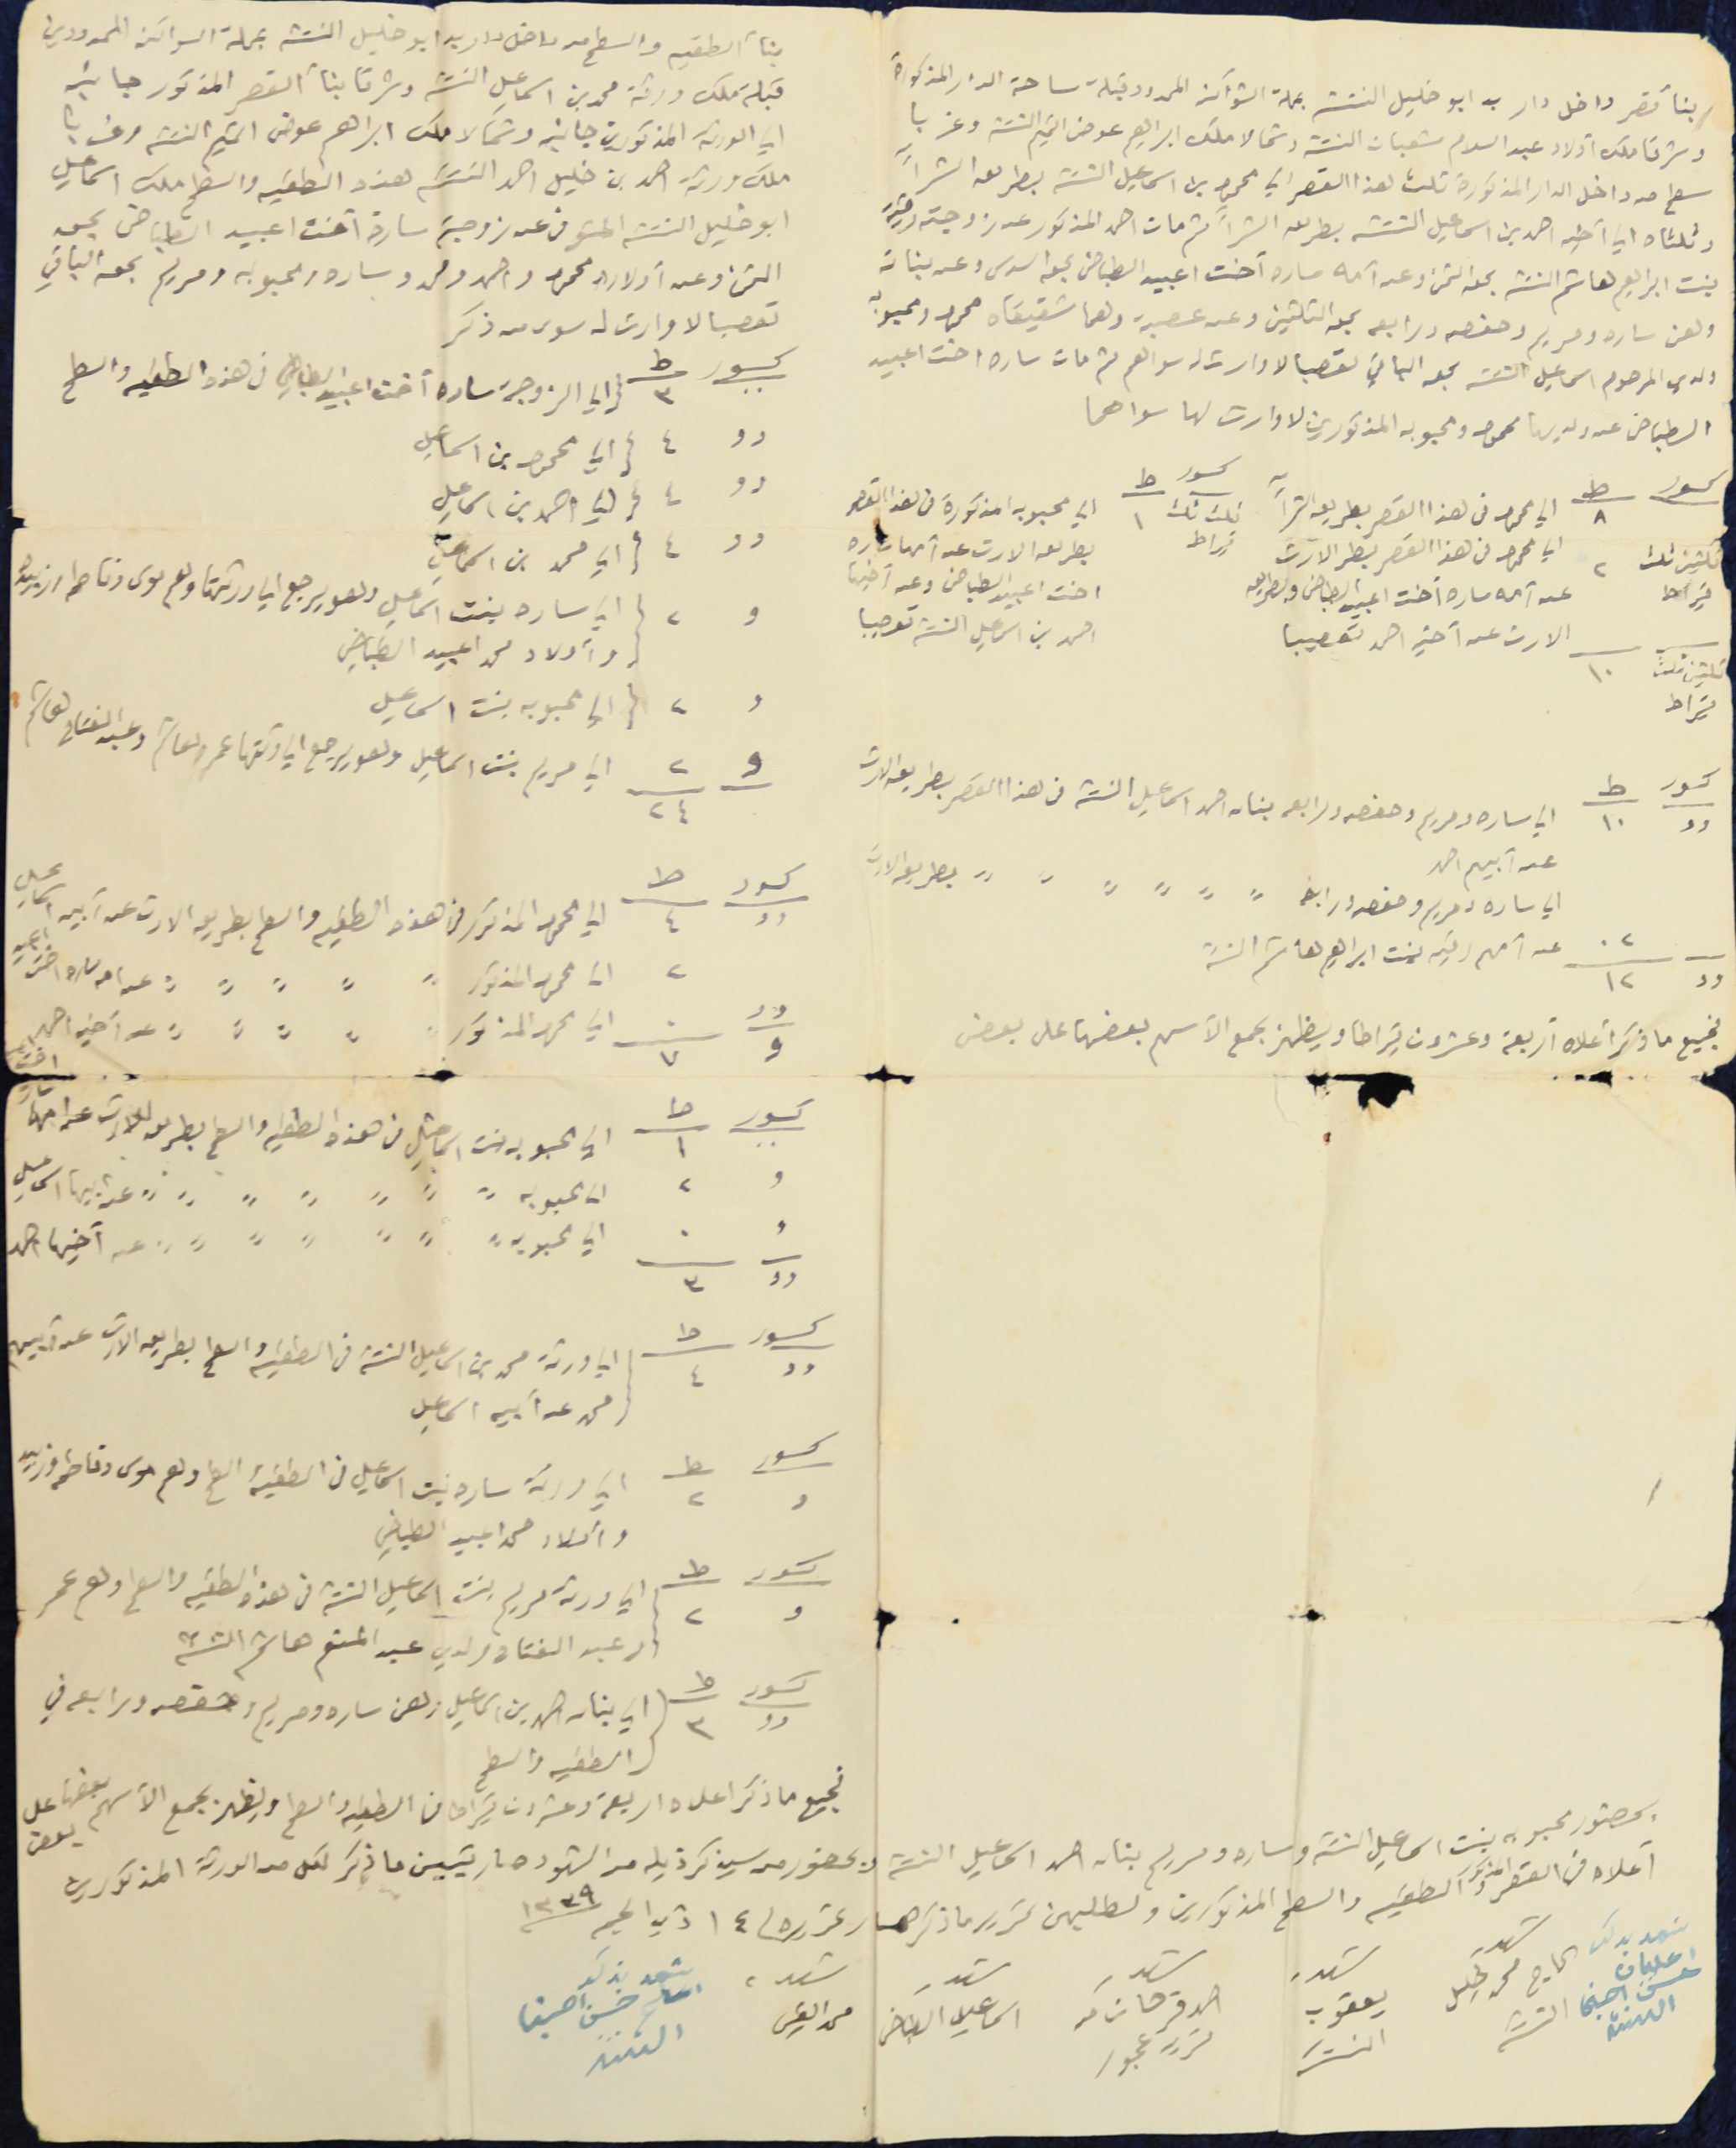 بنا قصر داخل دار يد ابو خليل النتشه بمحلة الشواكنه المحدود قبلة ساحة الدار المذكورة
وشرقا ملك اولاد عبد السلام شعبان النتشه وشمالا ملك ابراهيم عوض النتشه وغربا
سطح من داخل الدار المذكورة ثلث هذا القصر الي محمود بن اسماعيل النتشه بطريق الشراء
وثلثاه الي أخيه احمد بن اسماعيل النتشه بطريق الشراء ثم مات احمد المذكور عن زوجته رقيه
بنت ابراهيم هاشم النتشه بحق الثمن وعن أمه ساره أخت اعبيد الطباخي بحق السدس وعن بناته
وهن ساره ومريم وحفصه ورابعه بحق الثلثين وعن عصبة وهما شقيقاه محمود ومحبوبه
ولدي المرحوم اسماعيل النتشه بحق الباقي تعصبا لا وارث له سواهم ثم مات ساره اخت اعبيد
الطباخي عن ولديها محمود ومحبوبه المذكورين لا وارث لها سواهما
كسور ط ٨ الي محمود في هذا القصر بطريق الشراء
ثلثين ثلث قيراط ٢ الي محمود في هذا القصر بطريق الارث
عن أمه ساره أخت اعبيد الطباخي وبطريق
الارث عن أخيه احمد تعصيبا
ثلثين ثلث قيراط ١٠
كسور ط
ثلث ثلث قيراط ١ الي محبوبه المذكورة في هذا القصر
بطريق الارث عن أمها ساره
اخت اعبيد الطباخي وعن أخيها
احمد بن اسماعيل النتشه تعصيبا
كسور ط
١٠ الي ساره ومريم وحفصه ورابعه بنات احمد اسماعيل النتشه في هذا القصر بطريق الارث
عن أبيهم احمد
الي ساره ومريم وحفصه ورابعه " " " " " " بطريق الارث
٠٢ عن أمهم رقيه بنت ابراهيم هاشم النتشة
١٢
فجميع ما ذكر أعلاه أربعة وعشرون قيراطا ويظهر بجمع الأسهم بعضها على بعض
بنا الطقيه والسطح من داخل دار يد ابو خليل النتشه بمحلة الشواكنه المحدودين
قبلة ملك ورثة محمد بن اسماعيل النتشه وشرقا بنا القصر المذكور
الي الورثة المذكورين وشمالا ملك ابراهيم عوض النتشه وغربا
ملك ورثة احمد بن خليل احمد النتشه هذه الطقيه والسطح ملك اسماعيل
ابو خليل النتشه المتوفي عن زوجته سارة أخت اعبيد الطباخي بحق
الثمن وعن أولاده محمود واحمد ومحمد وساره ومحبوبه ومريم بحق الباقي
تعصبا لا وارث له سوى من ذكر
كسور ط
٣ الي الزوجة ساره أخت اعبيد الطباخي في هذه الطقيه والسطح
٤ الي محمود بن اسماعيل
٤ الي احمد بن اسماعيل
٤ الي محمد بن اسماعيل
٢ الي ساره بنت اسماعيل وهو يرجع الي ورثتها وهم موسى وفاطمه وزبيده
وأولاد محمد اعبيد الطباخي
٢ الي محبوبه بنت اسماعيل
٢ الي مريم بنت اسماعيل وهو يرجع الي ورثتها عمر وهاشم وعبد الفتاح هاشم
٢٤
كسور ط
٤ الي محمود المذكور في هذه الطقيه والسطح بطريق الارث عن أبيه اسماعيل
٢ الي محمود المذكور " " " " " عن امه ساره اخت اعبيد
٠ الي محمود المذكور " " " " " عن أخيه احمد
٧
كسور ط
١ الي محبوبه بنت اسماعيل في هذه الطقيه والسطح بطريق الارث عن امها ساره اخت اعبيد
٢ الي محبوبه " " " " " " عن ابيها اسماعيل
٠ الي محبوبه " " " " " " عن أخيها احمد
٣
كسور ط
٤ الي ورثة محمد بن اسماعيل النتشة في الطقيه والسطح بطريق الارث عن أبيهم
محمد عن أبيه اسماعيل
كسور ط
٢ الي ورثة ساره بنت اسماعيل في الطقيه السطح وهم موسى وفاطمه وزبيده
وأولاد محمد اعبيد الطباخي
كسور ط
٢ الي ورثة مريم بنت اسماعيل النتشة في هذه الطقيه والسطح وهم عمر
وعبد الفتاح ولدي عبد المنعم هاشم النتشه
كسور ط
٣ الي بنات احمد بن اسماعيل وهن ساره ومريم وحفصه ورابعه في
الطقيه والسطح
فجميع ما ذكر اعلاه اربعة وعشرون قيراطا في الطقيه والسطح ويظهر بجمع الأسهم بعضها على بعض
بحضور محبوبه بنت اسماعيل النتشة وساره ومريم بنات احمد اسماعيل النتشة وبحضور من سيذكر ذيله من الشهود صار تبيين ما ذكر لكل من الورثة المذكورين
أعلاه في القصر المذكور والطقيه والسطح المذكورين ولطلبهن تحرير ما ذكر صار تحريره في ١٤ ذي الحجه ١٣٣٩
شهد بذلك
حسن احينا
النتشة
شهد
الحاج محمد خليل
النتشه
شهد
يعقوب
النتشه
شهد
احمد
شهد
اسماعيل الطباخي
شهد
محمد
شهد بذلك
حسن احينا
النتشه